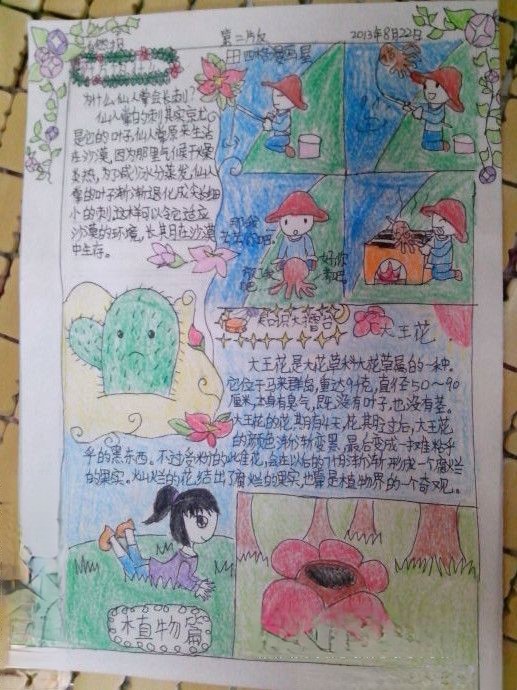 自然报
第二版
2013年8月22日
四格漫画屋
为什么仙人掌会长刺?
仙人掌的刺其实京尤
是它的叶子,仙人掌原来生活
在沙漠,因为那里气候干燥
炎热,为了减少水分蒸发,仙人
掌的叶子渐渐退化成尖长细
小的刺,这样可以令它适应
沙漠的环境,长其月在沙漠
中生存。
放了我
吧
那我
好你
知识大擂台
大王花
大王花是大花草科大花草属的一种。
它位于马来群岛,重达9千克,直径50~90
厘米,本身有臭气,既没有叶子,也没有茎。
大王花的花其月有4天,花其月过后,大王花
的颜色渐渐变黑,最后变成一摊粘乎
乎的黑东西。不过受粉的雌花,会在以后的7个月渐渐形成一个腐烂
的果实。灿烂的花,结出了腐烂的果实,也算是植物界的一个奇观。
植物篇